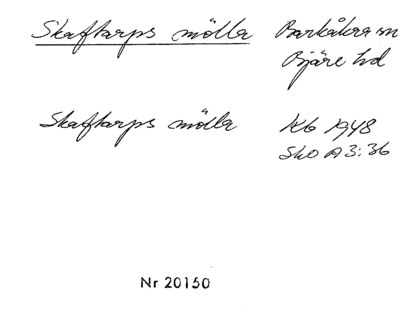 Skaftarps mölla Barkåkra sn
Bjäre hd
Skaftarps mölla Kb 1948
Sko A3:36
Nr 20150